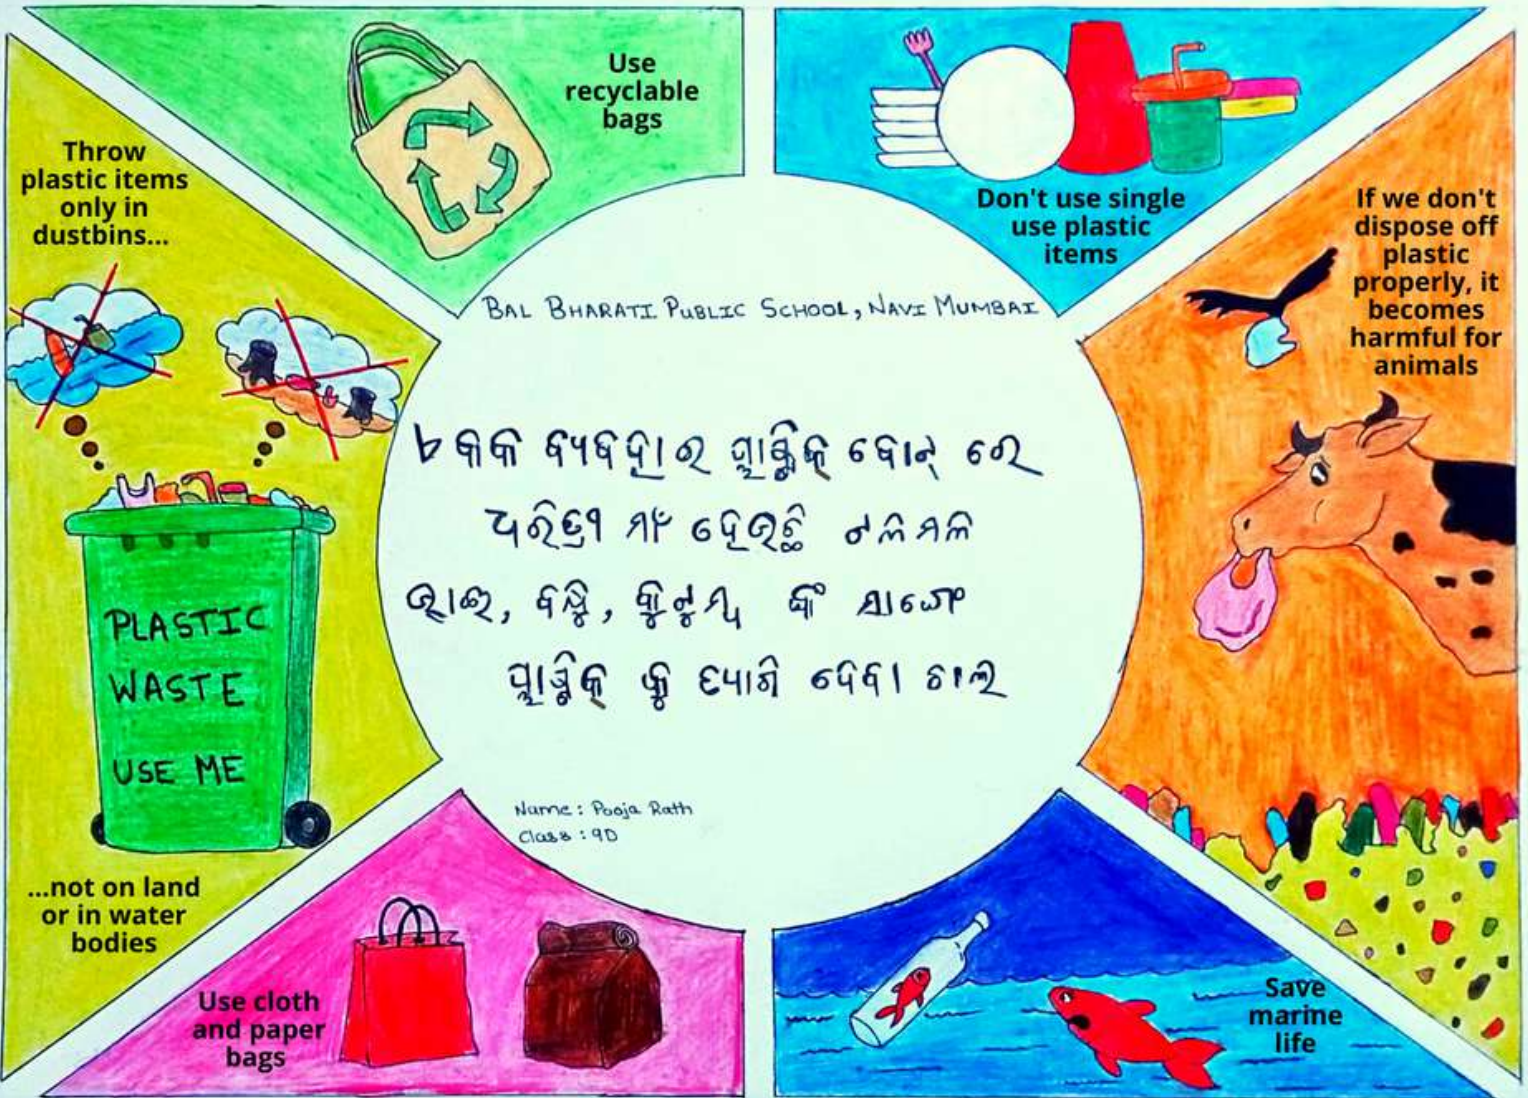 Use
recyclable
bags
Don't use single
use plastic
items
Throw
plastic items
only in
dustbins...
If we don't
dispose off
plastic
properly, it
becomes
harmful for
animals
BAL BHARATI PUBLIC SCHOOL, NAVI MUMBAI
ବ୍ୟବହାର ପ୍ଲାଷ୍ଟିକ୍ ବୋନ୍ ରେ
ଧରିତ୍ରୀ ମାଁ ହେଉଛି ଟଳମଳ
ଭାଇ, ବନ୍ଧୁ, କୁଟୁମ୍ବ
ପ୍ଲାଷ୍ଟିକ୍ କୁ ତ୍ୟାଗି ଦେବା ଚାଲ
PLASTIC
WASTE
USE ME
Name: Pooja Rath
Class: 9D
...not on land
or in water
bodies
Use cloth
and paper
bags
Save
marine
life